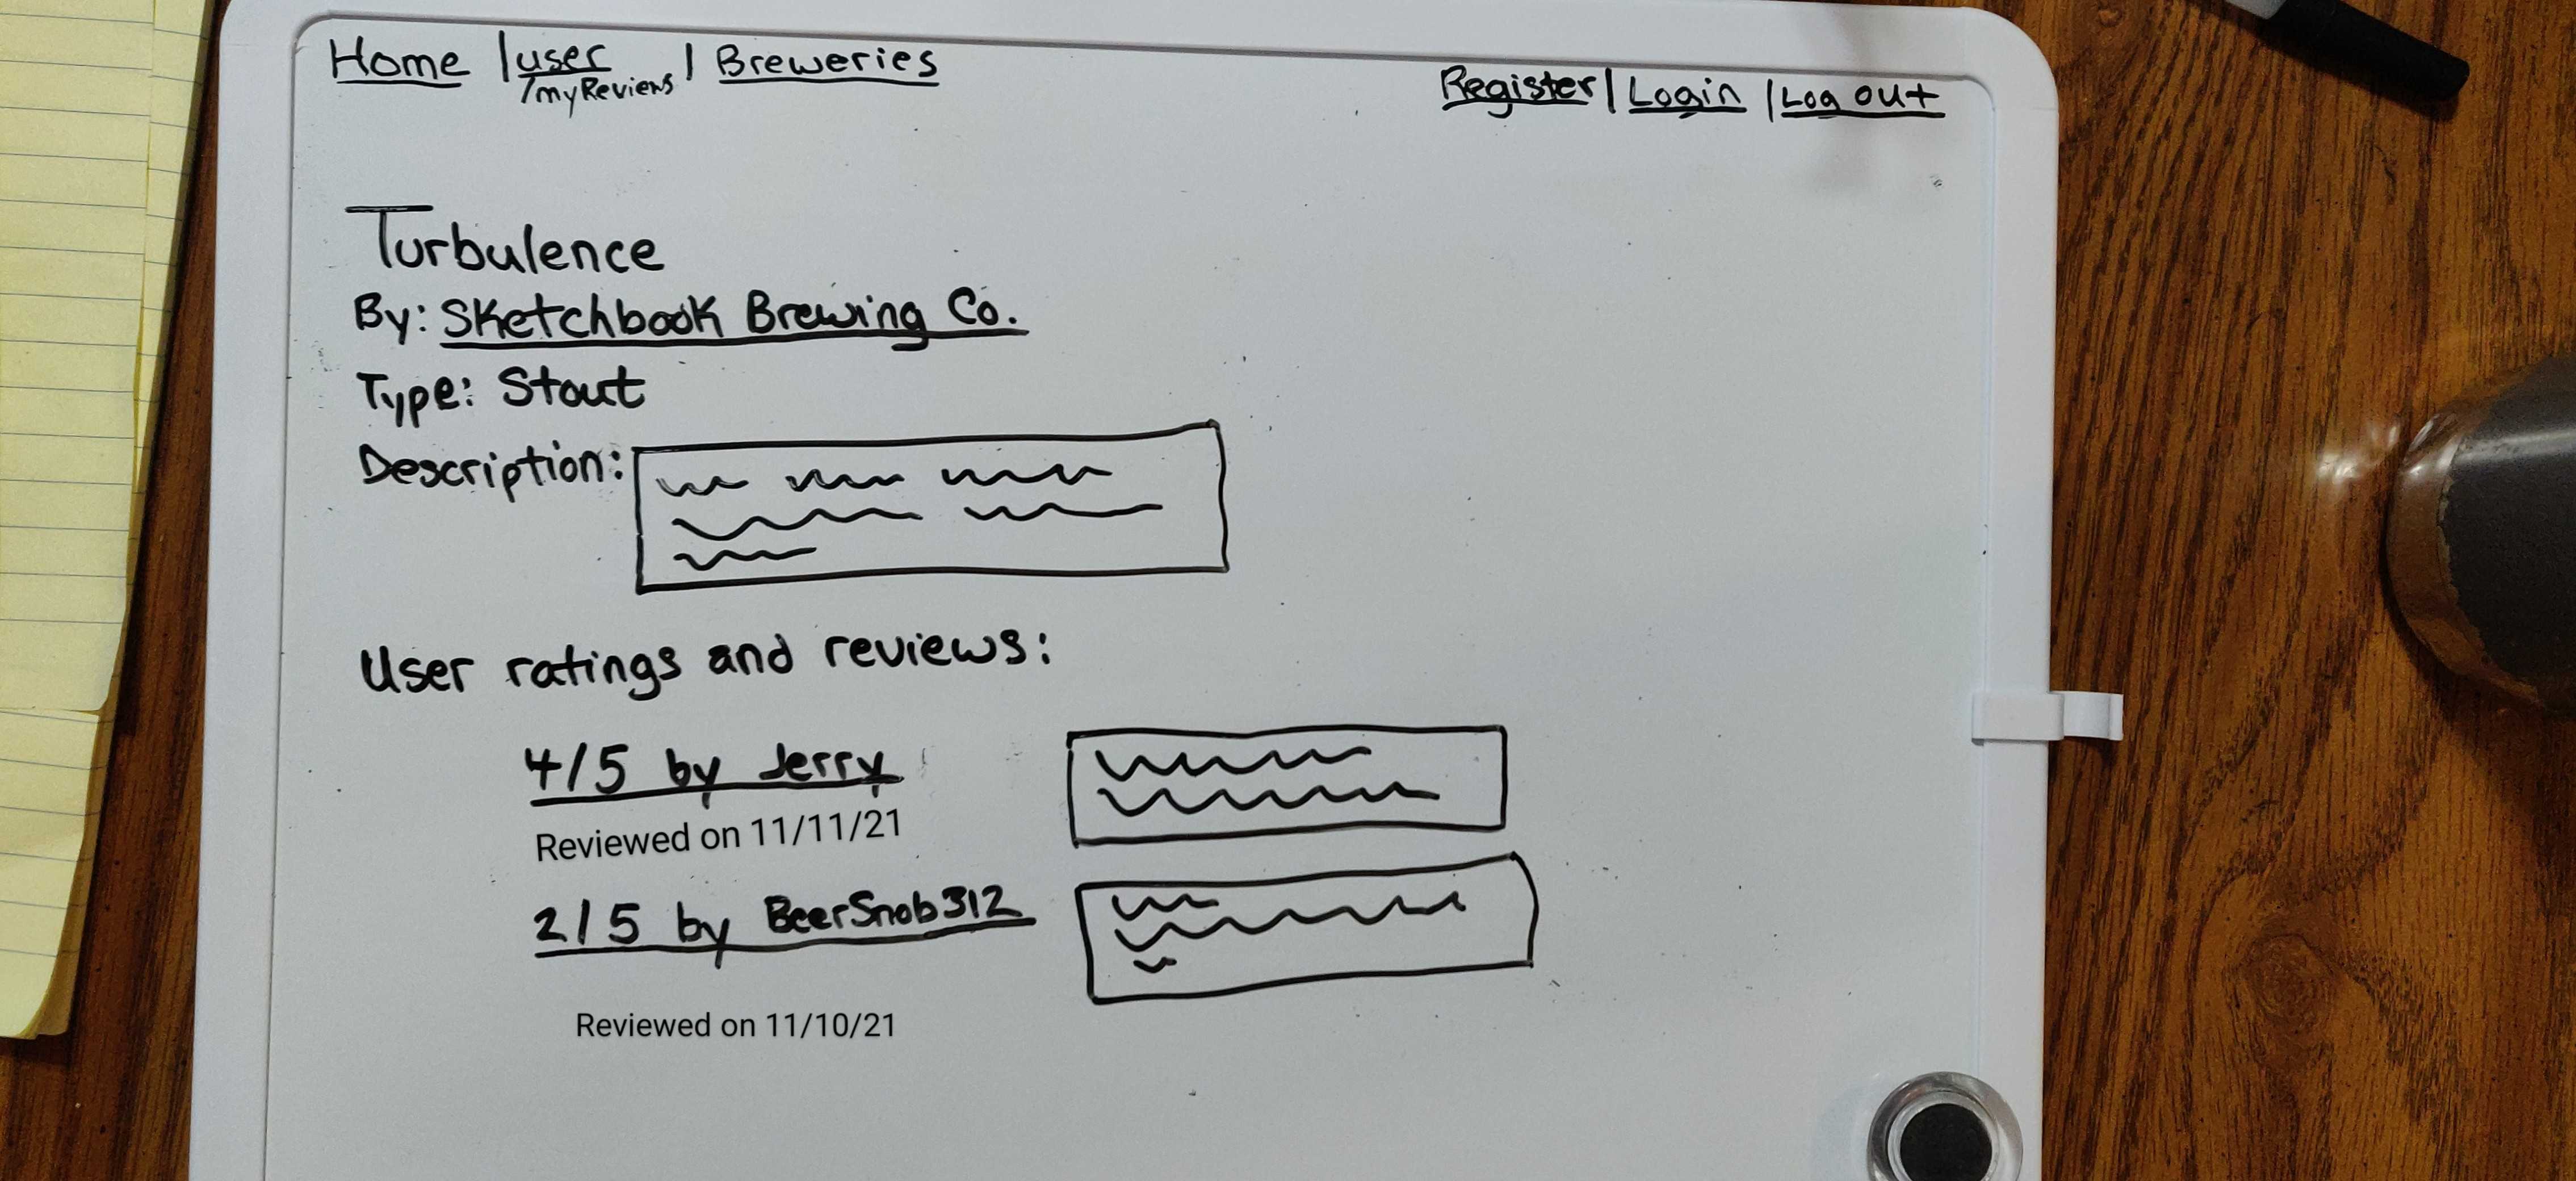 Home | user | Breweries
/myReviews
Register | Login | Log out
Turbulence
By: Sketchbook Brewing Co.
Type: Stout
Description:
User ratings and reviews:
4/5 by Jerry
Reviewed on 11/11/21
2/5 by BeerSnob312
Reviewed on 11/10/21